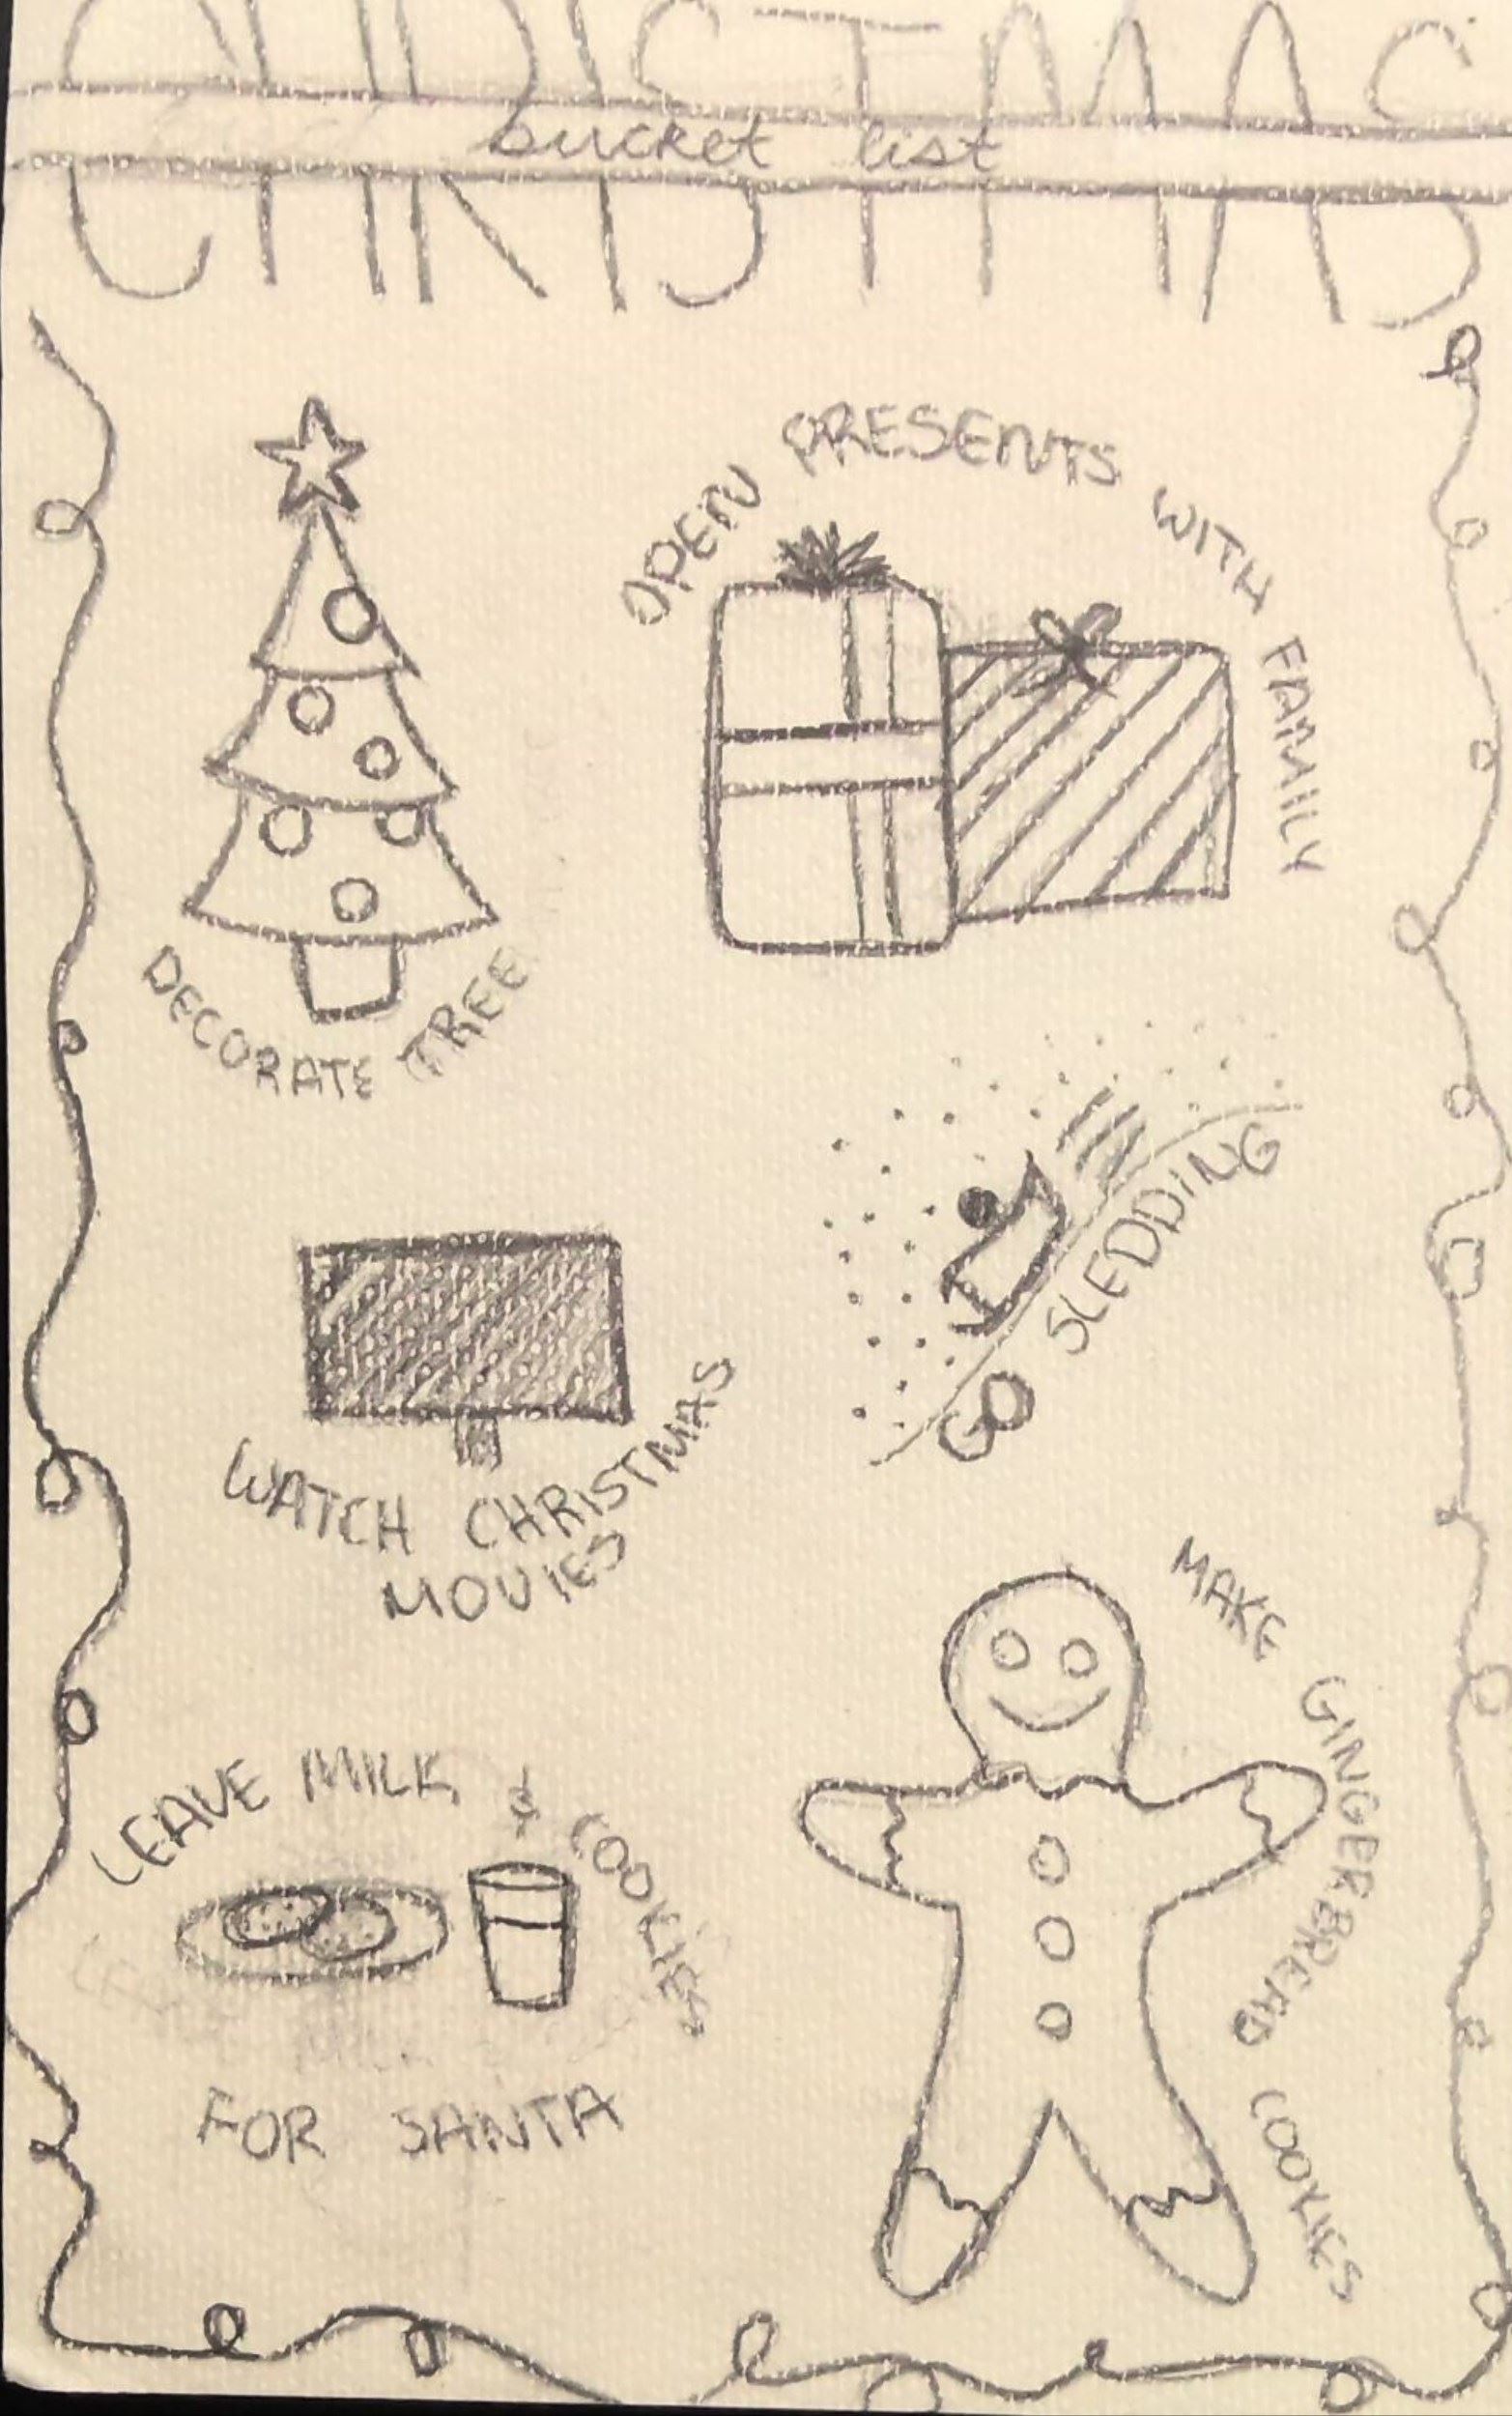 CHRISTMAS
bucket list
OPEN PRESENTS WITH FAMILY
DECORATE TREE
GO SLEDDING
WATCH CHRISTMAS
MOVIES
MAKE GINGERBREAD COOKIES
LEAVE MILK & COOKIES
FOR SANTA